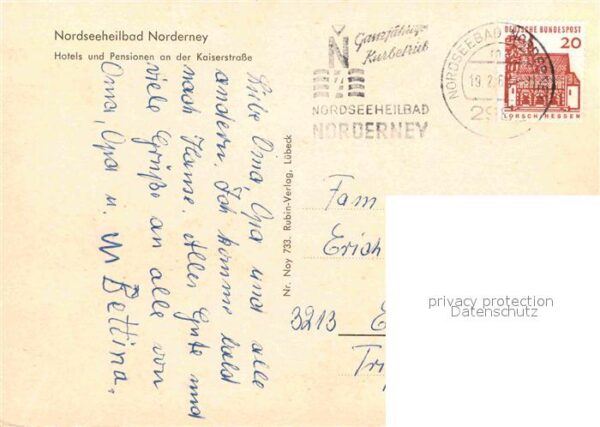 Nordseeheilbad Norderney
Hotels und Pensionen an der Kaiserstraße
Liebe Oma, Opa und alle
andern. Ich komme bald
nach Hause. Alles Gute und
viele Grüße an alle von
Oma, Opa u. Bettina.
Nr. Noy 733. Rubin-Verlag, Lübeck
Ganzjährig
Kurbetrieb
N
NORDSEEHEILBAD
NORDERNEY
NORDSEEBAD
19.2.6
298
DEUTSCHE BUNDESPOST
20
LORSCH/HESSEN
Fam
Erich
3213 E
Tri
privacy protection
Datenschutz